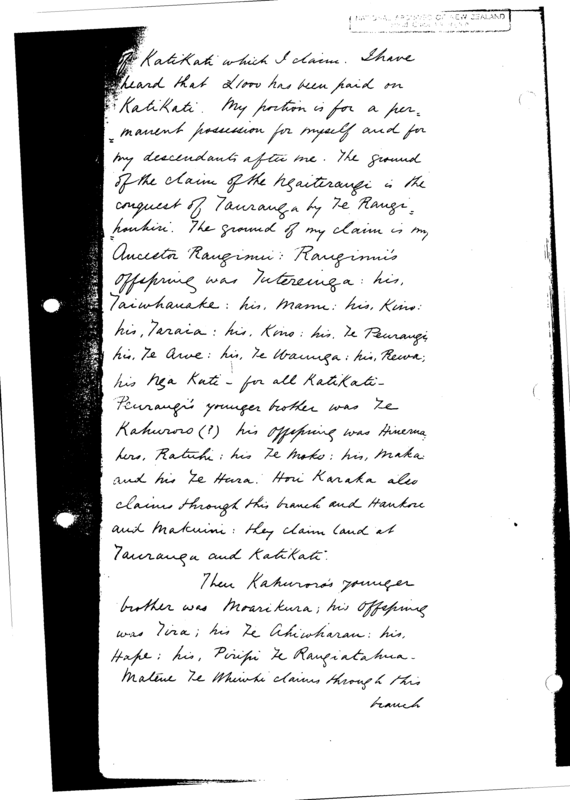 NATIONAL ARCHIVES OF NEW ZEALAND
of KatiKati which I claim. I have
heard that £1000 has been paid on
KatiKati. My portion is for a per=
=manent possession for myself and for
my descendants after me. The ground
of the claim of the Ngaiterangi is the
conquest of Tauranga by Te Rangi=
=houhiri. The ground of my claim is my
Ancestor Ranginui: Ranginui's
Offspring was Tutereinga: his,
Taiwhanake: his, Mamu: his, Kino:
his, Taraia: his, Kino: his, Te Peurangi
his, Te Awe: his, Te Waunga: his, Rewa;
his Nga Kati - for all KatiKati -
Peurangi's younger brother was Te
Kahuroro (?) his offspring was Hinema
hero, Ratuhi: his Te Moko: his, Maka:
and his Te Hura. Hori Karaka also
claims through this branch and Hankore
and Makuini: they claim land at
Tauranga and KatiKati.
Then Kahuroro's younger
brother was Moarikura; his offspring
was Tira; his Te Ahiwharau: his,
Hape: his, Piripi Te Rangiatahua -
Matene Te Whiwhi claims through this
branch